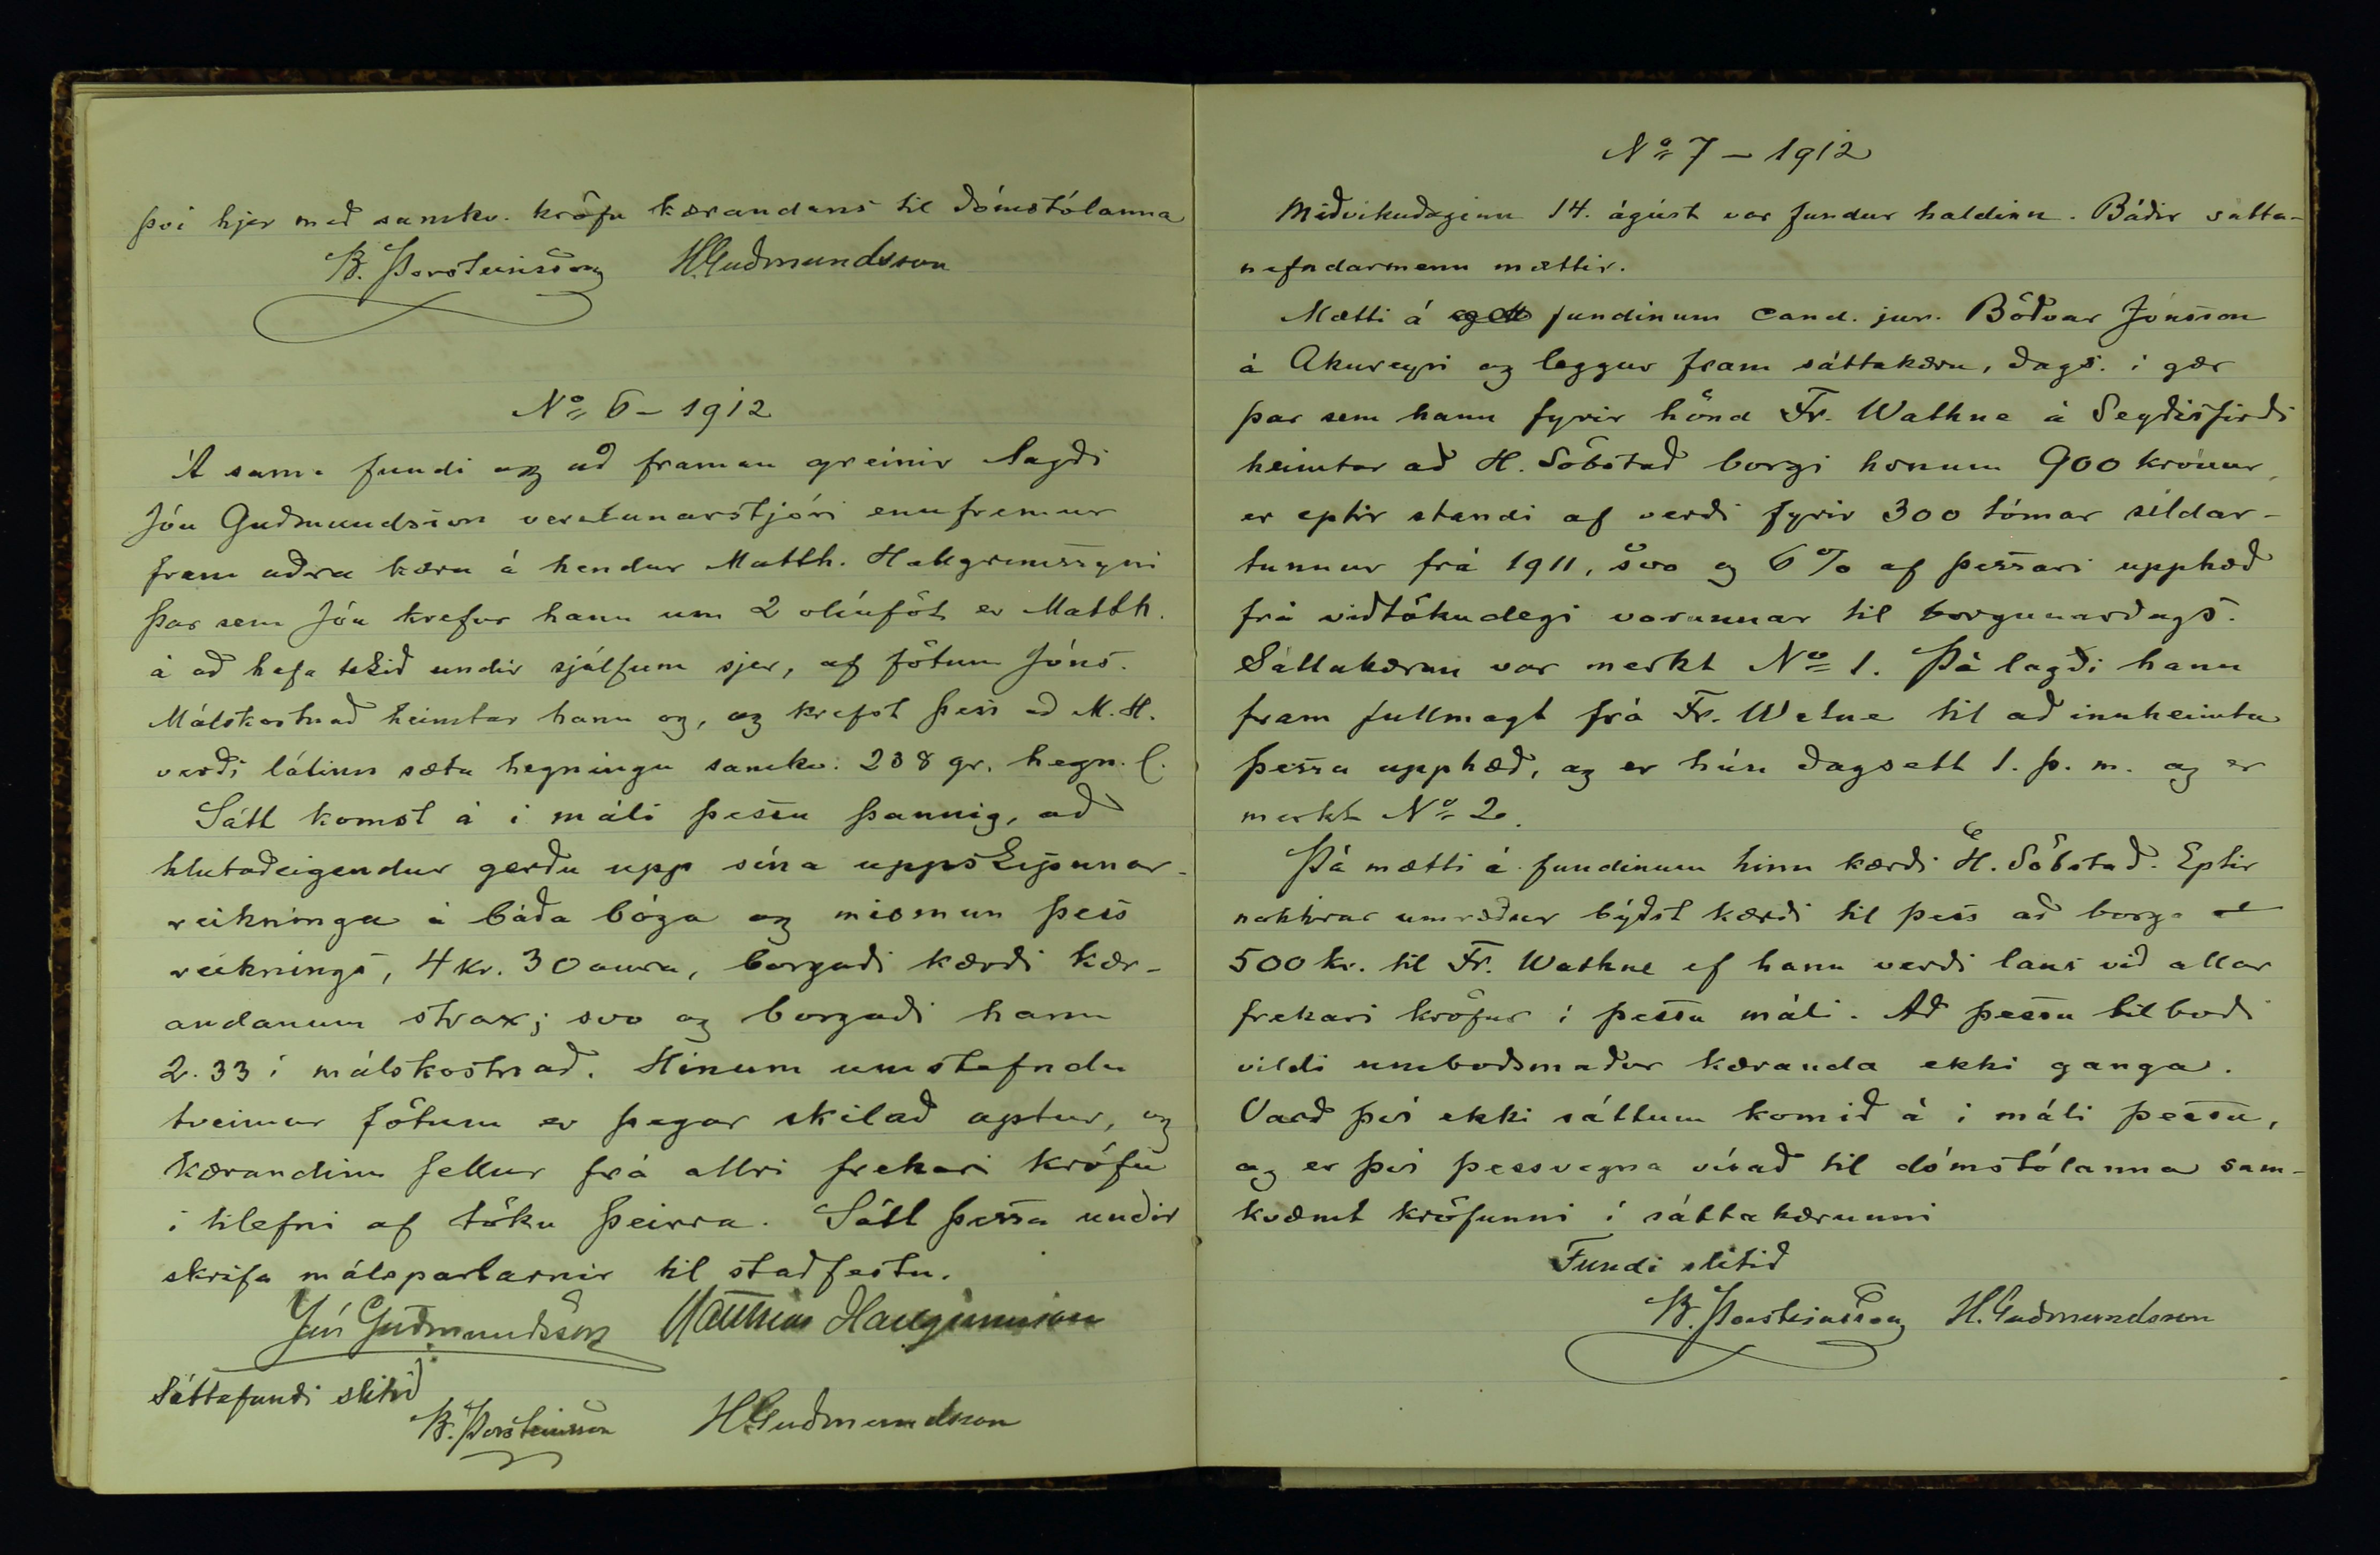 því hjer með samkv. kröfu kærandans til dómstólanna
B. Þorsteinsson H. Guðmundsson
No 6 - 1912
Á sama fundi og að framan greinir lagði
Jón Guðmundsson verslunarstjóri ennfremur
fram aðra kæru á hendur Matth. Hallgrímssyni
þar sem Jón krefur hann um 2 olíuföt er Matth.
á að hafa tekið undir sjálfum sjer, af fötum Jóns.
Málskostnað heimtar hann og, og krefst þess að M.H.
verði látinn sæta hegningu samkv. 238 gr. hegn. l.
Sátt komst á í máli þessu þannig, að
hlutaðeigendur gerðu upp sína uppskipunar-
reikninga á báða bóga og mismun þess
reiknings, 4 kr. 30 aura, borgaði kærði kær-
andanum strax; svo og borgaði hann
2.33 í málskostnað. Hinum umstefndu
tveimur fötum er þegar skilað aptur, og
kærandinn fellur frá allri frekari kröfu
í tilefni af töku þeirra. Sátt þessa undir
skrifa málspartarnir til staðfestu.
Jón Guðmundsson Matthías Hallgrímsson
Sáttafundi slitið
B. Þorsteinsson H. Guðmundsson
No 7 - 1912
Miðvikudaginn 14. ágúst var fundur haldinn. Báðir sátta-
nefndarmenn mættir.
Mætti á fundinum cand. jur. Böðvar Jónsson
á Akureyri og leggur fram sáttakæru, dags. í gær
þar sem hann fyrir hönd Fr. Wathne á Seyðisfirði
heimtar að H. Söbstað borgi honum 900 krónur,
er eptir standi af verði fyrir 300 tómar síldar-
tunnur frá 1911, svo og 6% af þessari upphæð
frá viðtökudegi vörunnar til borgunardags.
Sáttakæran var merkt No 1. Þá lagði hann
fram fullmagt frá Fr. Watne til að innheimta
þessa upphæð, og er hún dagsett 1. þ. m. og er
merkt No 2.
Þá mætti á fundinum hinn kærði H. Söbstað. Eptir
nokkrar umræður býðst kærði til þess að borga
500 kr. til Fr. Wathne ef hann verði laus við allar
frekari kröfur í þessu máli. Að þessu tilboði
vildi umboðsmaður kæranda ekki ganga.
Varð því ekki sáttum komið á í máli þessu,
og er því þessvegna vísað til dómstólanna sam-
kvæmt kröfunni í sáttakærunni
Fundi slitið
B. Þorsteinsson H. Guðmundsson